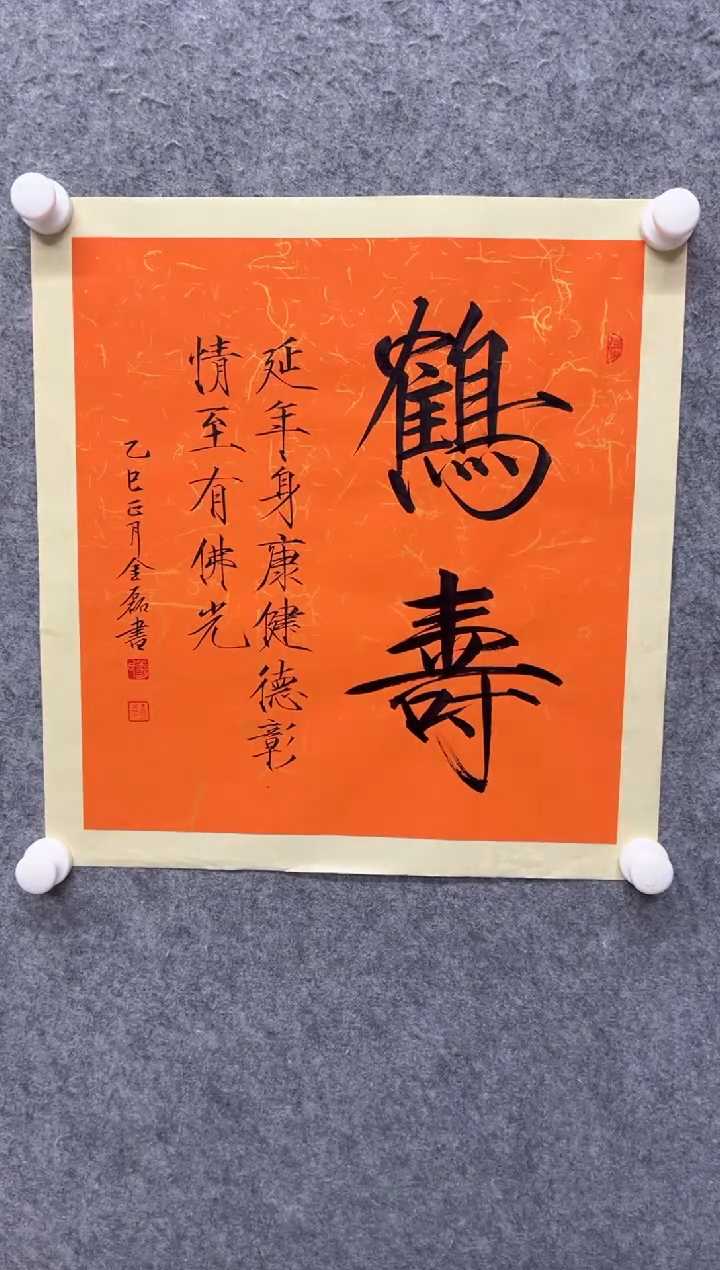 鶴壽
延年身康健德彰
情至有佛光
乙巳正月金磊書